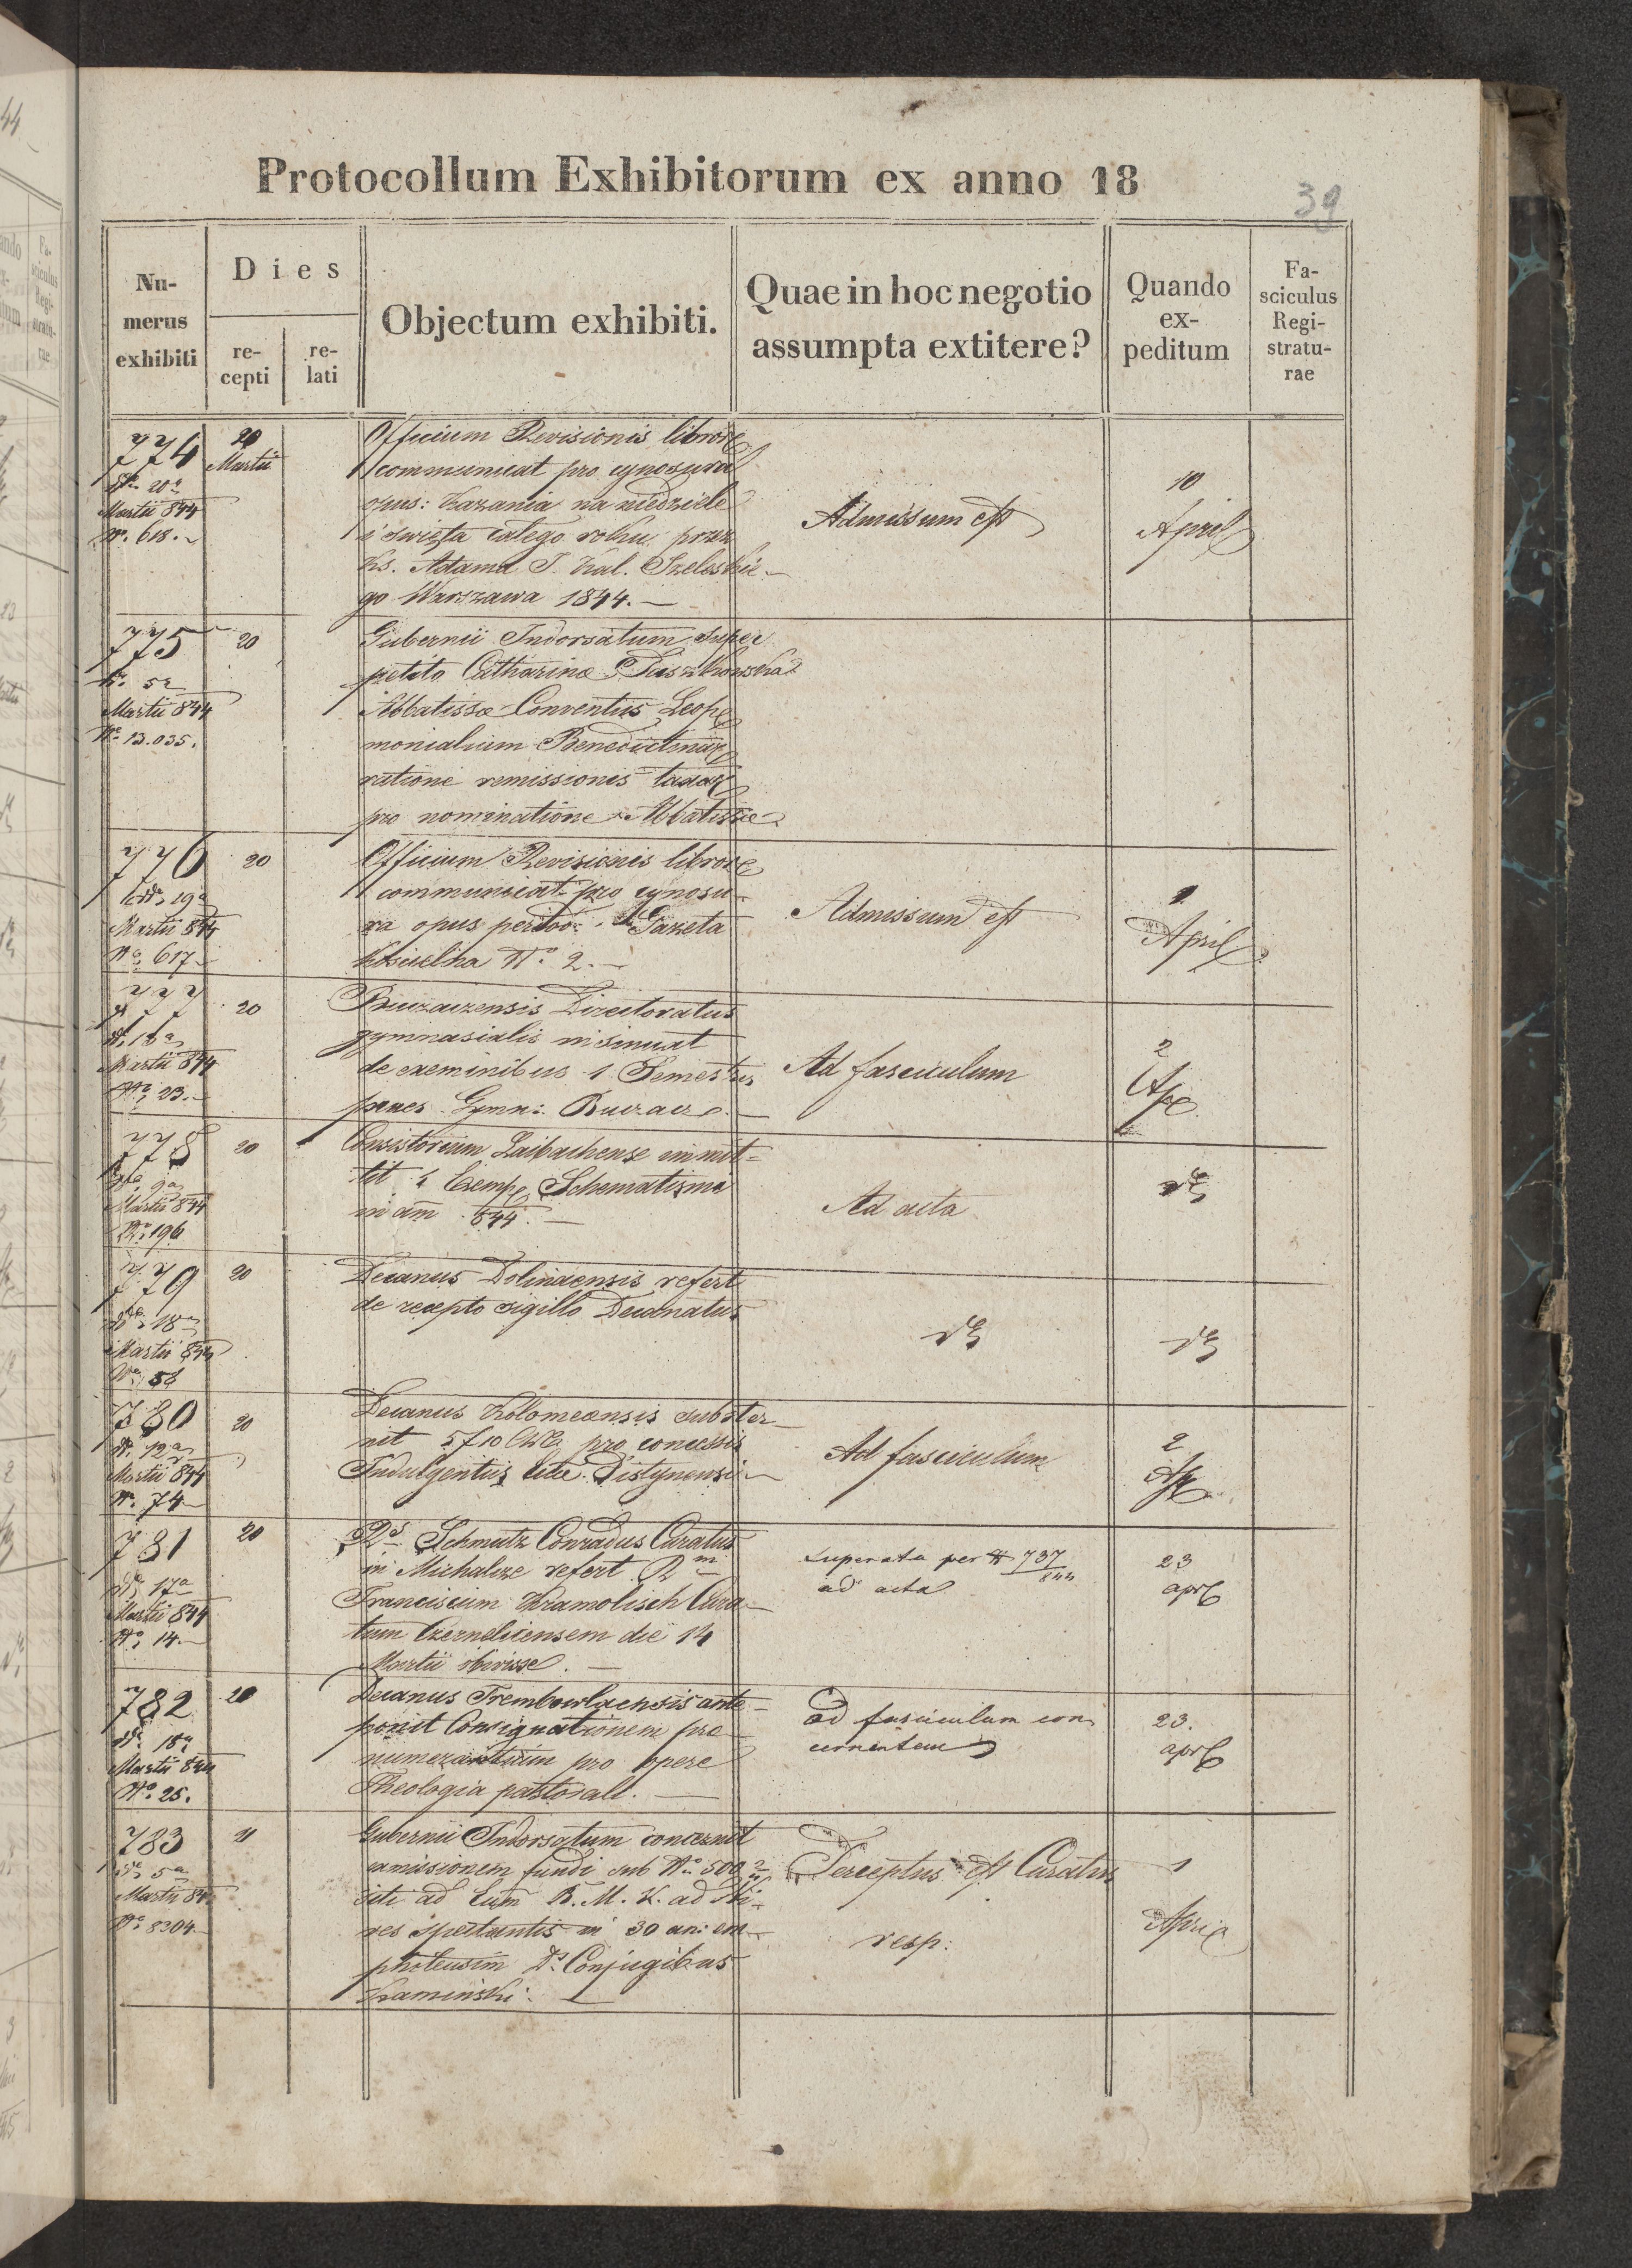 Protocollum Exhibitorum ex anno 18
39
Nu-
merus
exhibiti
Dies
re-
cepti
re-
lati
Objectum exhibiti.
Quae in hoc negotio
assumpta extitere?
Quando
ex-
peditum
Fa-
sciculus
Regi-
stratu-
rae
774
20
Martii
Martii 844
Nº. 618.
Officium Revisionis libror
communicat pro cynosura
opus: Kazania na niedziele
i święta całego roku przez
Ks. Adama J. Kal. Szeleskie
go Warszawa 1844. —
Admissum est
10
April
775
20
Martii 844
Nº 13.035.
Gubernii Indorsatum super
petito Catharinæ
Abbatissæ Conventus Leop
monialium Benedictinar
ratione remissionis taxar
pro nominatione Abbatissæ
776
20
dto 19a
Martii 844
Nº 617
Officium Revisionis libror
communicat pro cynosu-
ra opus period: Gazeta
Kościelna Nº. 2. —
Admissum est
1
April
777
20
dto 18a
Martii 844
Nº 23.
Buczaczensis Directoratus
gymnasialis insinuat
de exeminibus 1 Semestris
penes Gymn: Buczacz. —
Ad fasciculum
2
Ap
778
20
dto 9a
Martii 844
Nº 196
Consistorium Laibachense immit=
tit Exemp Schematismi
in ann 844. —
Ad acta
779
20
dto 18a
Martii 844
Nº 58
Decanus Dolinaensis refert
de recepto sigillo Decanatus
780
20
dto 12a
Martii 844
Nº. 74
Decanus Kolomeaensis subster-
nit 5f 10 pro concessis
Indulgentiis Pistynensi
Ad fasciculum
2
Ap
781
20
dto 17a
Martii 844
Nº 14
Rds Schmutz Conradus Curatus
in Michalcze refert Rm
Franciscum Kramolisch Cura-
tum Czernelicensem die 14
Martii obivisse. —
Superata per # 737/844
ad acta
23
apr
782
20
dto 18a
Martii 844
Nº 25.
Decanus Trembowlaensis ante-
ponit Consignationem præ
numerantium pro opere
Theologia pastorali. —
ad fasciculum con
cernentem
23.
apr
783
21
dto 5a
Martii 844
Nº 8304
Gubernii Indorsatum concernit
emissionem fundi sub Nº 500
siti ad Eccl[m] B. M. V. ad Ni-
ves spectantis in 30 an: em-
phyteusim Ds Conjugibus
Kaminski. —
Perceptus est Curatus
resp:
1
April